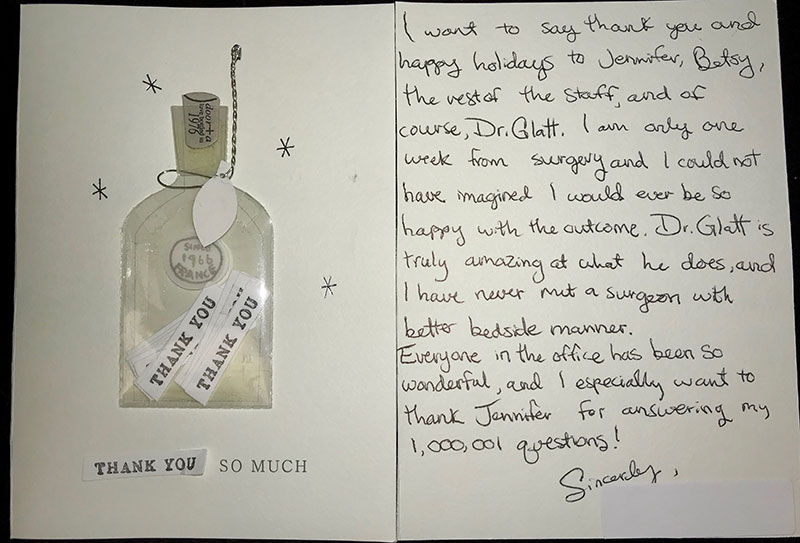 1976
SINCE
1966
FRANCE
THANK YOU
THANK YOU
THANK YOU SO MUCH
I want to say thank you and
happy holidays to Jennifer, Betsy,
the rest of the staff, and of
course, Dr. Glatt. I am only one
week from surgery and I could not
have imagined I would ever be so
happy with the outcome. Dr. Glatt is
truly amazing at what he does, and
I have never met a surgeon with
better bedside manner.
Everyone in the office has been so
wonderful, and I especially want to
thank Jennifer for answering my
1,000,001 questions!
Sincerely,